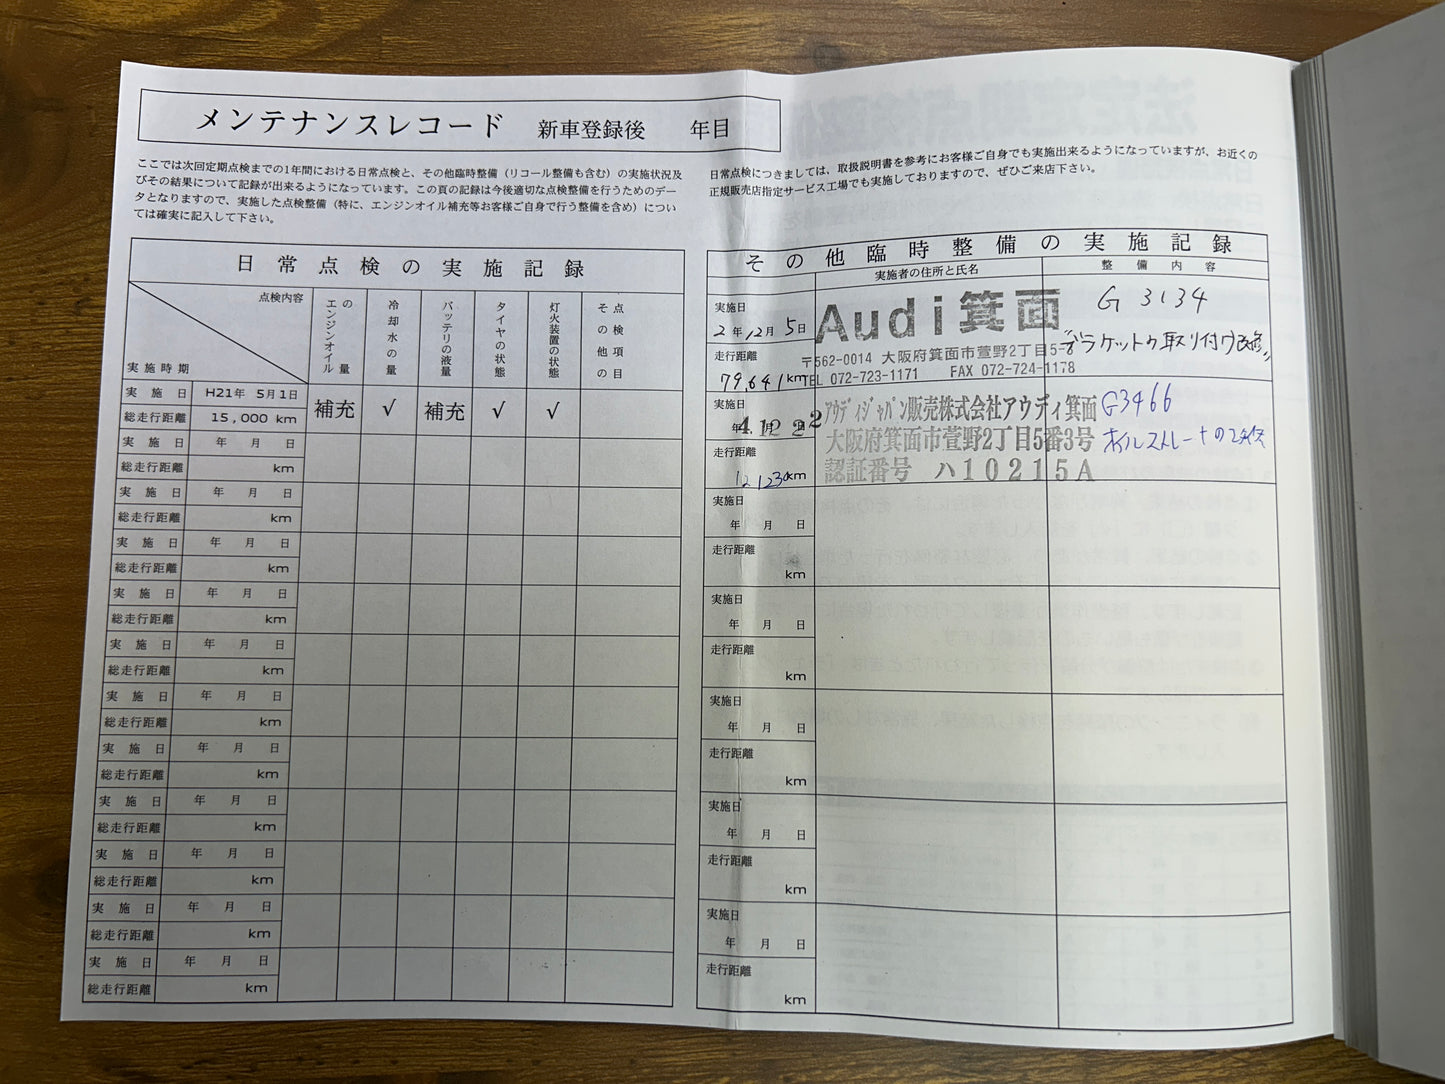 メンテナンスレコード 新車登録後 年目
ここでは次回定期点検までの1年間における日常点検と、その他臨時整備（リコール整備も含む）の実施状況及
びその結果について記録が出来るようになっています。この頁の記録は今後適切な点検整備を行うためのデー
タとなりますので、実施した点検整備（特に、エンジンオイル補充等お客様ご自身で行う整備を含め）につい
ては確実に記入して下さい。
日常点検の実施記録
点検内容
実施時期
エンジンオイルの量
冷却水の量
バッテリの液量
タイヤの状態
灯火装置の状態
その他の点検項目
実施日 H21年 5月1日 補充 √ 補充 √ √
総走行距離 15,000 km
実施日 年 月 日
総走行距離 km
実施日 年 月 日
総走行距離 km
実施日 年 月 日
総走行距離 km
実施日 年 月 日
総走行距離 km
実施日 年 月 日
総走行距離 km
実施日 年 月 日
総走行距離 km
実施日 年 月 日
総走行距離 km
実施日 年 月 日
総走行距離 km
実施日 年 月 日
総走行距離 km
実施日 年 月 日
総走行距離 km
実施日 年 月 日
総走行距離 km
日常点検につきましては、取扱説明書を参考にお客様ご自身でも実施出来るようになっていますが、お近くの
正規販売店指定サービス工場でも実施しておりますので、ぜひご来店下さい。
その他臨時整備の実施記録
実施者の住所と氏名 整備内容
実施日
2年12月5日
走行距離
79,641km
Audi箕面
〒562-0014 大阪府箕面市萱野2丁目5-8
TEL 072-723-1171 FAX 072-724-1178
G 3134
ブラケットの取り付け改修
実施日
年 月 日
4.12 22
走行距離
km
アウディジャパン販売株式会社アウディ箕面
大阪府箕面市萱野2丁目5番3号
認証番号 ハ10215A
G3466
実施日
年 月 日
走行距離
km
実施日
年 月 日
走行距離
km
実施日
年 月 日
走行距離
km
実施日
年 月 日
走行距離
km
実施日
年 月 日
走行距離
km